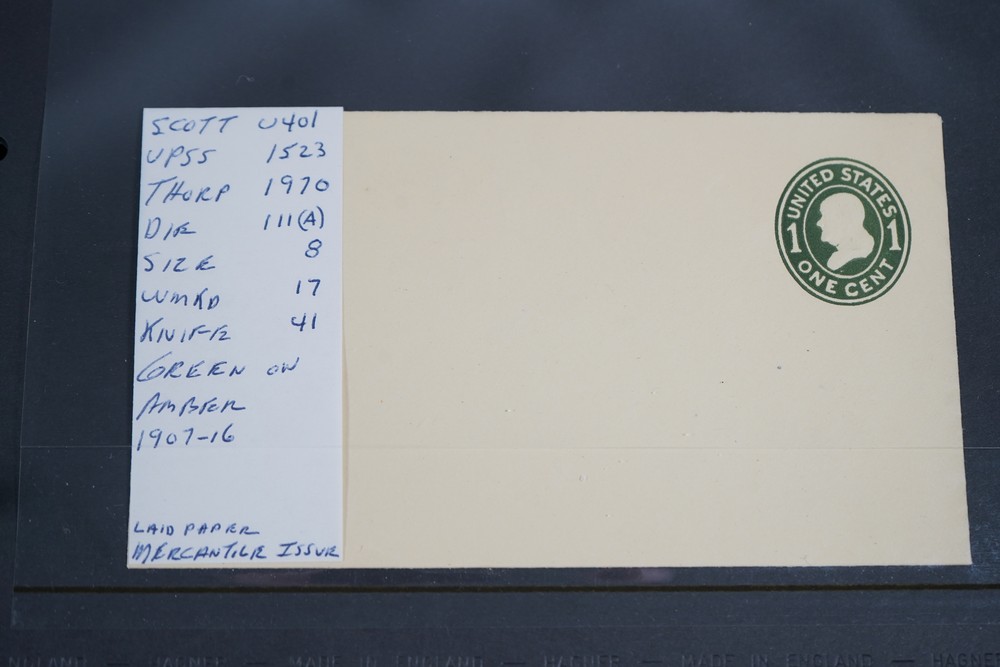 SCOTT U401
UPSS 1523
THORP 1970
DIE 111(A)
SIZE 8
WMKD 17
KNIFE 41
GREEN ON
AMBER
1907-16
LAID PAPER
MERCANTILE ISSUE
UNITED STATES
1 1
ONE CENT
ENGLAND — HAGNER — MADE IN ENGLAND — HAGNER — MADE IN ENGLAND — HAGNER